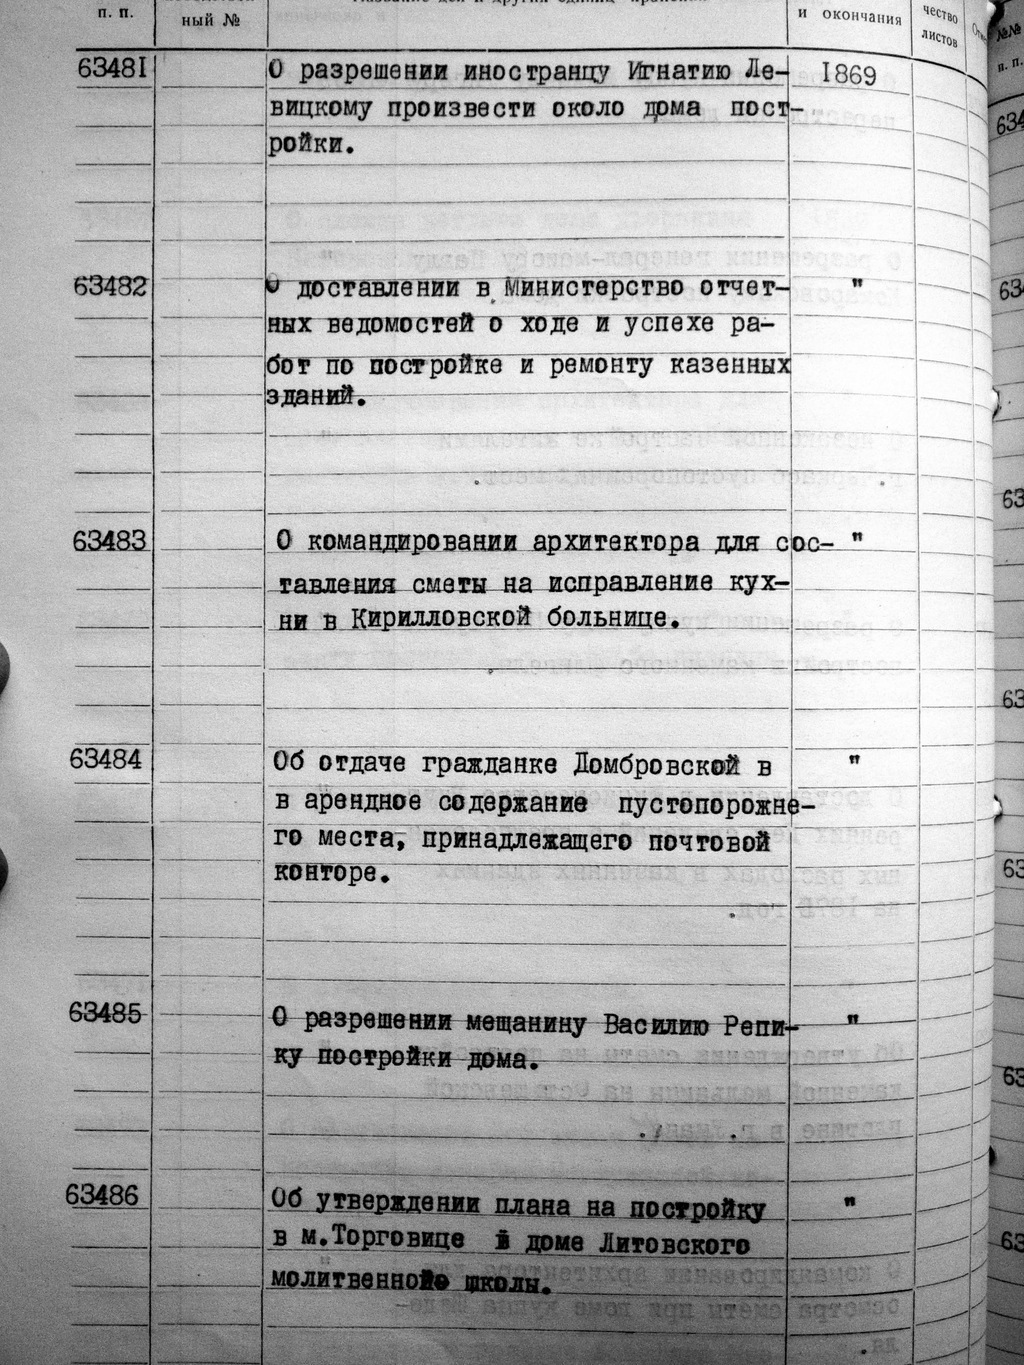 ный №
и окончания
чество
листов
п. п.
№№
п. п.
63481 О разрешении иностранцу Игнатию Ле- 1869
вицкому произвести около дома пост-
ройки.
63482 О доставлении в Министерство отчет- "
ных ведомостей о ходе и успехе ра-
бот по постройке и ремонту казенных
зданий.
63483 О командировании архитектора для сос- "
тавления сметы на исправление кух-
ни в Кирилловской больнице.
63484 Об отдаче гражданке Домбровской в "
в арендное содержание пустопорожне-
го места, принадлежащего почтовой
конторе.
63485 О разрешении мещанину Василию Репи- "
ку постройки дома.
63486 Об утверждении плана на постройку "
в м.Торговице в доме Литовского
молитвенной школы.